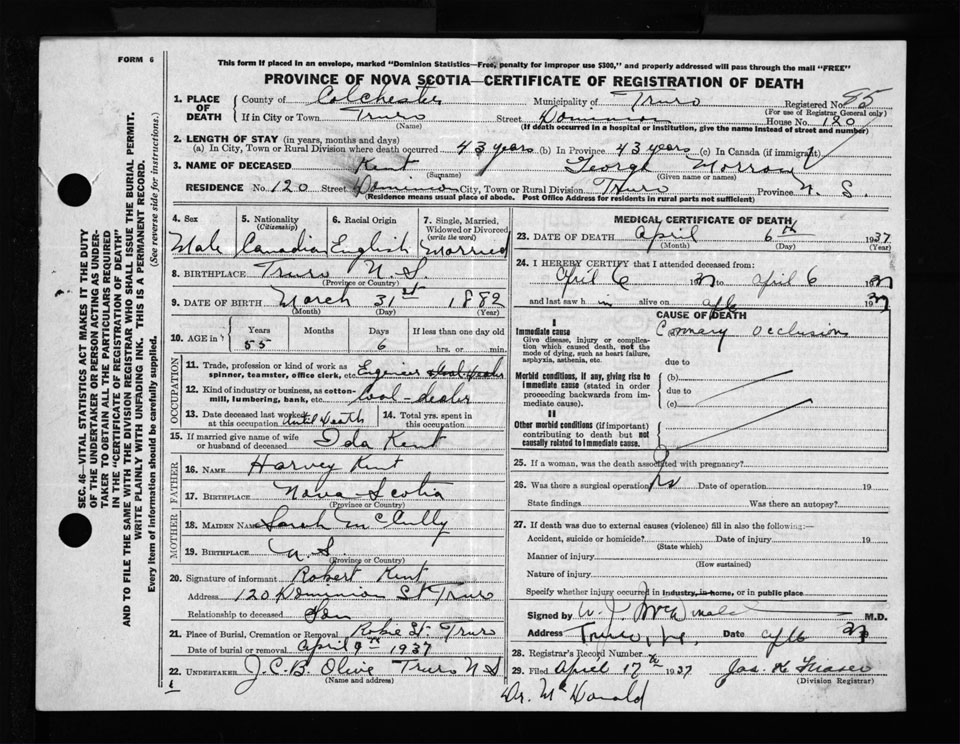 FORM 6
This form if placed in an envelope, marked "Dominion Statistics—Free, penalty for improper use $300," and properly addressed will pass through the mail "FREE"
PROVINCE OF NOVA SCOTIA—CERTIFICATE OF REGISTRATION OF DEATH
1. PLACE OF DEATH County of Colchester Municipality of Truro Registered No. 85
(For use of Registrar General only)
If in City or Town Truro Street Dominion House No. 120
(Name) (If death occurred in a hospital or institution, give the name instead of street and number)
2. LENGTH OF STAY (in years, months and days)
(a) In City, Town or Rural Division where death occurred 43 years (b) In Province 43 years (c) In Canada (if immigrant)
3. NAME OF DECEASED Kent George Morrow
(Surname) (Given name or names)
RESIDENCE No. 120 Street Dominion City, Town or Rural Division Truro Province N. S.
(Residence means usual place of abode. Post Office Address for residents in rural parts not sufficient)
4. Sex Male
5. Nationality (Citizenship) Canadian
6. Racial Origin English
7. Single, Married, Widowed or Divorced (write the word) Married
8. BIRTHPLACE Truro N S
(Province or Country)
9. DATE OF BIRTH March 31st 1882
(Month) (Day) (Year)
10. AGE in Years 55 Months Days 6 If less than one day old hrs. or min.
OCCUPATION
11. Trade, profession or kind of work as spinner, teamster, office clerk, etc.
12. Kind of industry or business, as cotton-mill, lumbering, bank, etc. Coal-dealer
13. Date deceased last worked at this occupation Until Death
14. Total yrs. spent in this occupation
15. If married give name of wife or husband of deceased Ida Kent
FATHER
16. NAME Harvey Kent
17. BIRTHPLACE Nova Scotia
(Province or Country)
MOTHER
18. MAIDEN NAME Sarah McCully
19. BIRTHPLACE N. S.
(Province or Country)
20. Signature of informant Robert Kent
Address 120 Dominion St Truro
Relationship to deceased Son
21. Place of Burial, Cremation or Removal Robie St Truro
Date of burial or removal April 9th 1937
22. UNDERTAKER J.C.B. Olive Truro N S
(Name and address)
MEDICAL CERTIFICATE OF DEATH
23. DATE OF DEATH April 6th 1937
(Month) (Day) (Year)
24. I HEREBY CERTIFY that I attended deceased from:
April 6 1937 to April 6 1937
and last saw h im alive on Ap 6 1937
CAUSE OF DEATH
I
Immediate cause Coronary Occlusion
Give disease, injury or complication which caused death, not the mode of dying, such as heart failure, asphyxia, asthenia, etc.
due to
Morbid conditions, if any, giving rise to immediate cause (stated in order proceeding backwards from immediate cause).
(b)
due to
(c)
II
Other morbid conditions (if important) contributing to death but not causally related to immediate cause.
25. If a woman, was the death associated with pregnancy?
26. Was there a surgical operation No Date of operation 19
State findings Was there an autopsy?
27. If death was due to external causes (violence) fill in also the following:—
Accident, suicide or homicide? Date of injury 19
(State which)
Manner of injury
(How sustained)
Nature of injury
Specify whether injury occurred in industry, in home, or in public place
Signed by W. J. McDonald M.D.
Address Truro, N.S. Date Ap 6 37
28. Registrar's Record Number
29. Filed April 17th 1937 Jas. K Fraser
(Division Registrar)
Dr. McDonald
SEC. 46—VITAL STATISTICS ACT MAKES IT THE DUTY
OF THE UNDERTAKER OR PERSON ACTING AS UNDER-
TAKER TO OBTAIN ALL THE PARTICULARS REQUIRED
IN THE "CERTIFICATE OF REGISTRATION OF DEATH"
AND TO FILE THE SAME WITH THE DIVISION REGISTRAR WHO SHALL ISSUE THE BURIAL PERMIT.
WRITE PLAINLY WITH UNFADING INK. THIS IS A PERMANENT RECORD.
Every item of information should be carefully supplied. (See reverse side for instructions.)